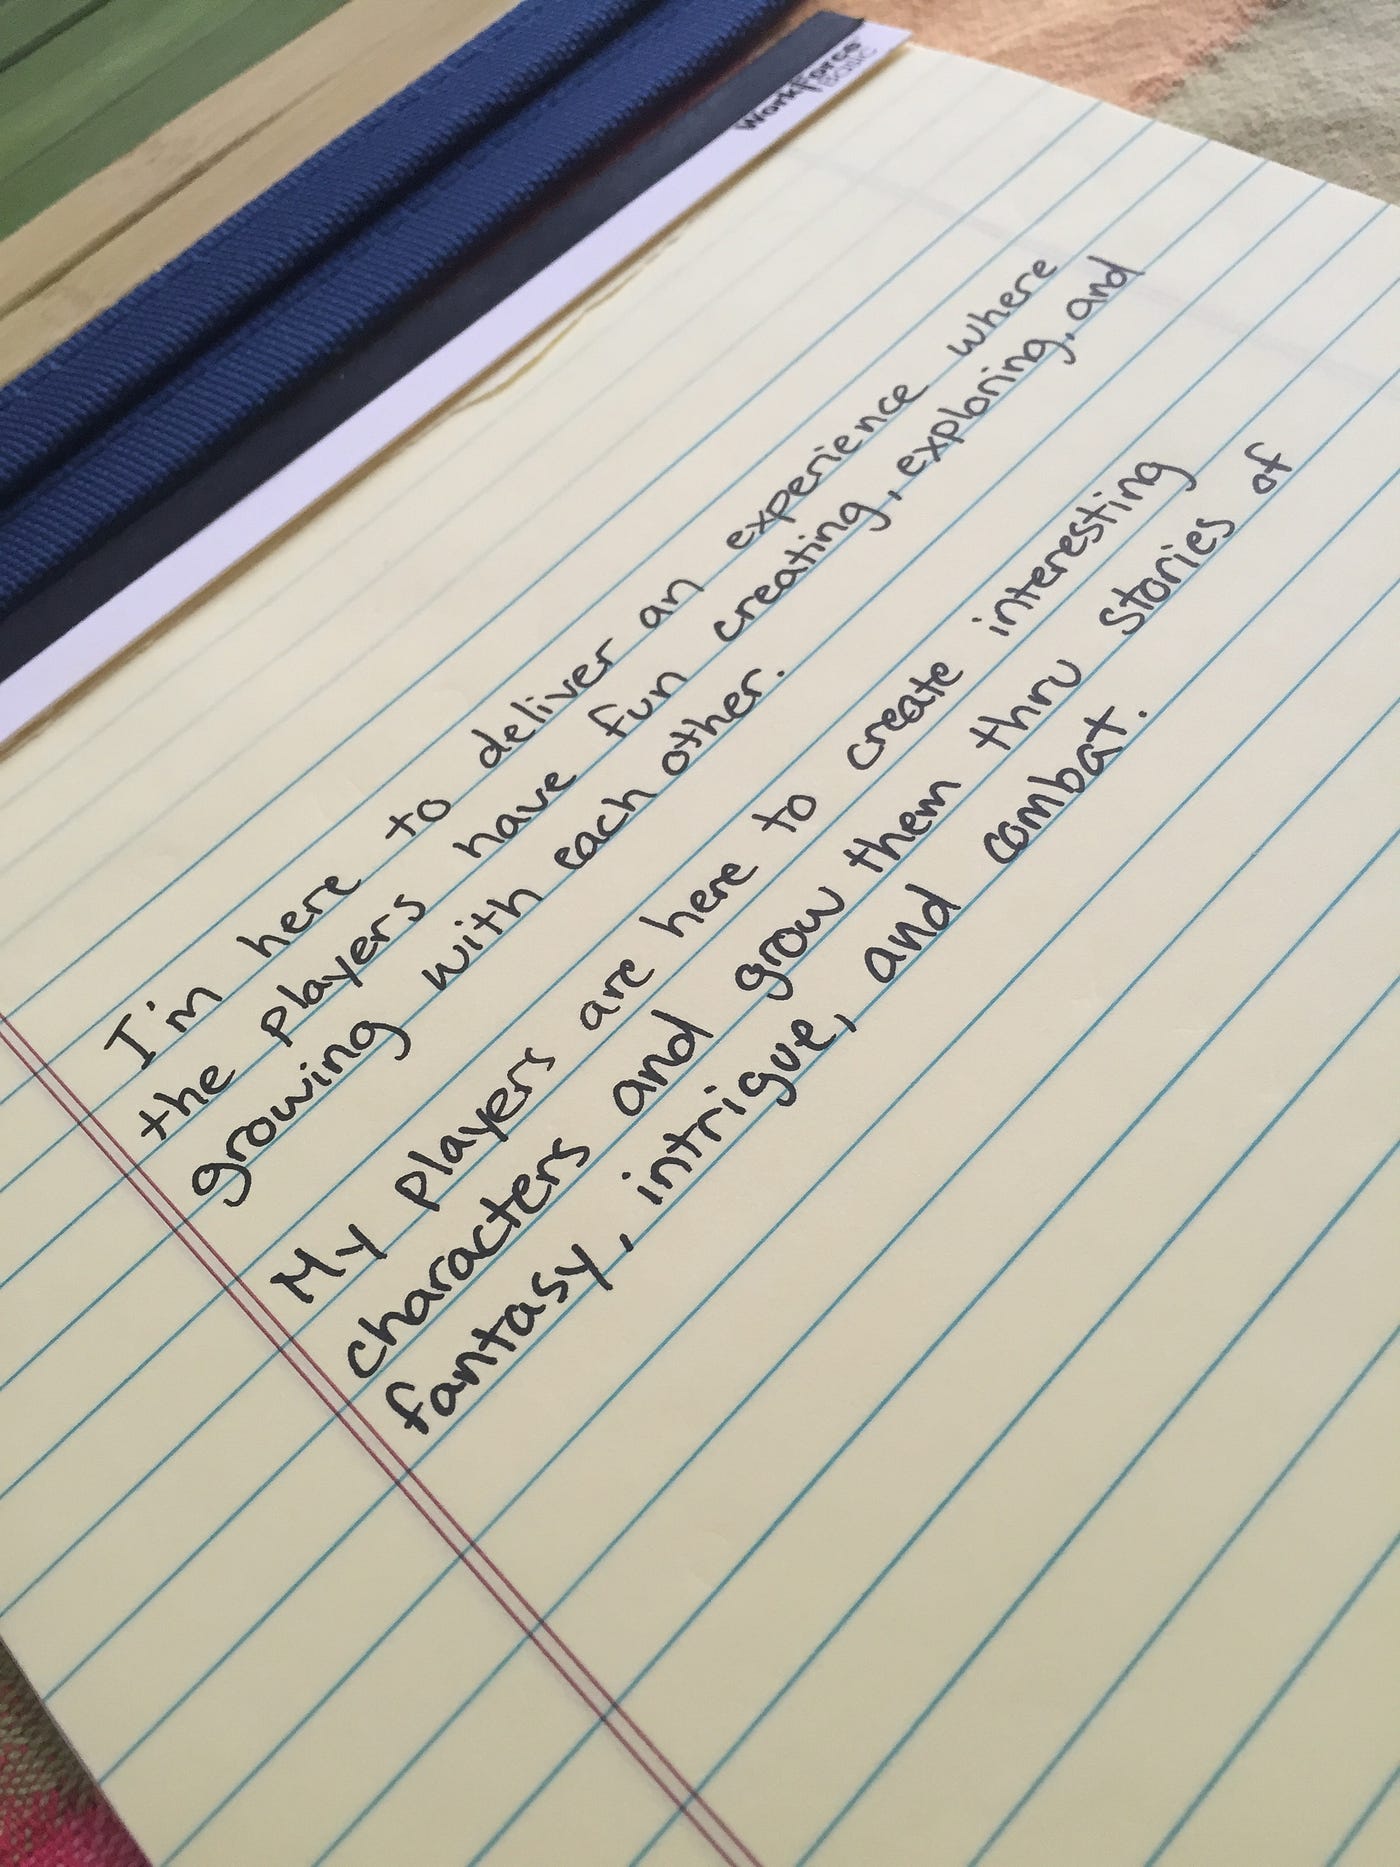 WorkForce
BASIC
I'm here to deliver an experience where
the players have fun creating, exploring, and
growing with each other.
My players are here to create interesting
characters and grow them thru stories of
fantasy, intrigue, and combat.